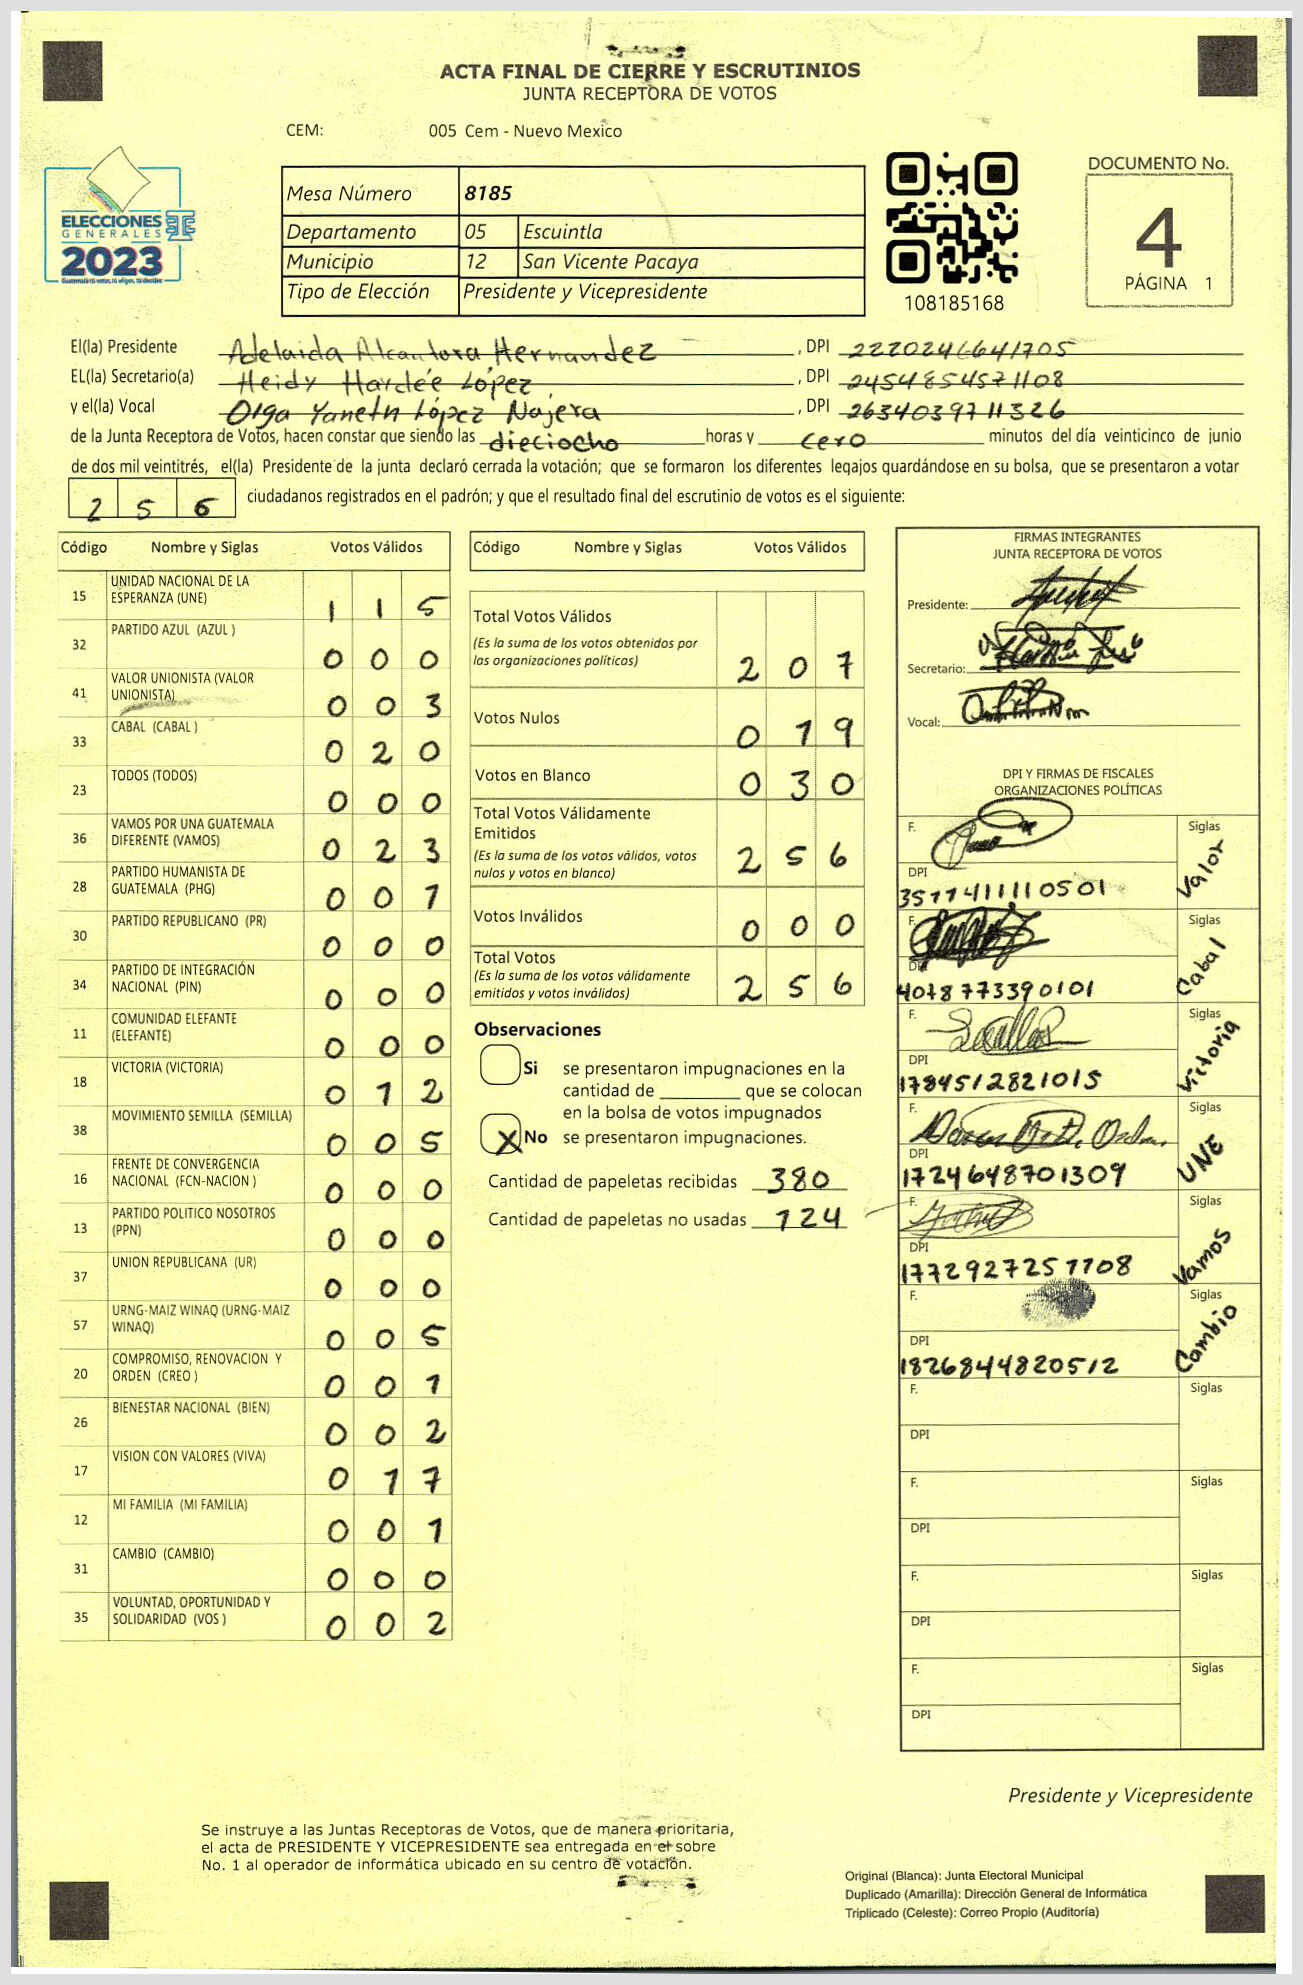 ACTA FINAL DE CIERRE Y ESCRUTINIOS
JUNTA RECEPTORA DE VOTOS
CEM: 005 Cem - Nuevo Mexico
ELECCIONES
GENERALES
2023
Mesa Número 8185
Departamento 05 Escuintla
Municipio 12 San Vicente Pacaya
Tipo de Elección Presidente y Vicepresidente
108185168
DOCUMENTO No.
4
PÁGINA 1
El(la) Presidente Adelaida Alcantora Hernandez , DPI 2220246641705
EL(la) Secretario(a) Heidy Hardée López , DPI 2454854571108
y el(la) Vocal Olga Yaneth López Najera , DPI 2634039711326
de la Junta Receptora de Votos, hacen constar que siendo las dieciocho horas y cero minutos del día veinticinco de junio
de dos mil veintitrés, el(la) Presidente de la junta declaró cerrada la votación; que se formaron los diferentes legajos guardándose en su bolsa, que se presentaron a votar
256 ciudadanos registrados en el padrón; y que el resultado final del escrutinio de votos es el siguiente:
Código Nombre y Siglas Votos Válidos
15 UNIDAD NACIONAL DE LA ESPERANZA (UNE) 115
32 PARTIDO AZUL (AZUL ) 000
41 VALOR UNIONISTA (VALOR UNIONISTA) 003
33 CABAL (CABAL ) 020
23 TODOS (TODOS) 000
36 VAMOS POR UNA GUATEMALA DIFERENTE (VAMOS) 023
28 PARTIDO HUMANISTA DE GUATEMALA (PHG) 001
30 PARTIDO REPUBLICANO (PR) 000
34 PARTIDO DE INTEGRACIÓN NACIONAL (PIN) 000
11 COMUNIDAD ELEFANTE (ELEFANTE) 000
18 VICTORIA (VICTORIA) 012
38 MOVIMIENTO SEMILLA (SEMILLA) 005
16 FRENTE DE CONVERGENCIA NACIONAL (FCN-NACION ) 000
13 PARTIDO POLITICO NOSOTROS (PPN) 000
37 UNION REPUBLICANA (UR) 000
57 URNG-MAIZ WINAQ (URNG-MAIZ WINAQ) 005
20 COMPROMISO, RENOVACION Y ORDEN (CREO ) 001
26 BIENESTAR NACIONAL (BIEN) 002
17 VISION CON VALORES (VIVA) 017
12 MI FAMILIA (MI FAMILIA) 001
31 CAMBIO (CAMBIO) 000
35 VOLUNTAD, OPORTUNIDAD Y SOLIDARIDAD (VOS ) 002
Código Nombre y Siglas Votos Válidos
Total Votos Válidos
(Es la suma de los votos obtenidos por
las organizaciones políticas) 207
Votos Nulos 019
Votos en Blanco 030
Total Votos Válidamente
Emitidos
(Es la suma de los votos válidos, votos
nulos y votos en blanco) 256
Votos Inválidos 000
Total Votos
(Es la suma de los votos válidamente
emitidos y votos inválidos) 256
Observaciones
Si se presentaron impugnaciones en la
cantidad de ________ que se colocan
en la bolsa de votos impugnados
X No se presentaron impugnaciones.
Cantidad de papeletas recibidas 380
Cantidad de papeletas no usadas 124
FIRMAS INTEGRANTES
JUNTA RECEPTORA DE VOTOS
Presidente:
Secretario:
Vocal:
DPI Y FIRMAS DE FISCALES
ORGANIZACIONES POLÍTICAS
F. Siglas Valor
DPI 3577411110501
F. Siglas Cabal
DPI 4018773390101
F. Siglas Victoria
DPI 1784512821015
F. Siglas UNE
DPI 1724648701309
F. Siglas Vamos
DPI 1772927251108
F. Siglas Cambio
DPI 1826844820512
F. Siglas
DPI
F. Siglas
DPI
F. Siglas
DPI
F. Siglas
DPI
Presidente y Vicepresidente
Se instruye a las Juntas Receptoras de Votos, que de manera prioritaria,
el acta de PRESIDENTE Y VICEPRESIDENTE sea entregada en el sobre
No. 1 al operador de informática ubicado en su centro de votación.
Original (Blanca): Junta Electoral Municipal
Duplicado (Amarilla): Dirección General de Informática
Triplicado (Celeste): Correo Propio (Auditoría)